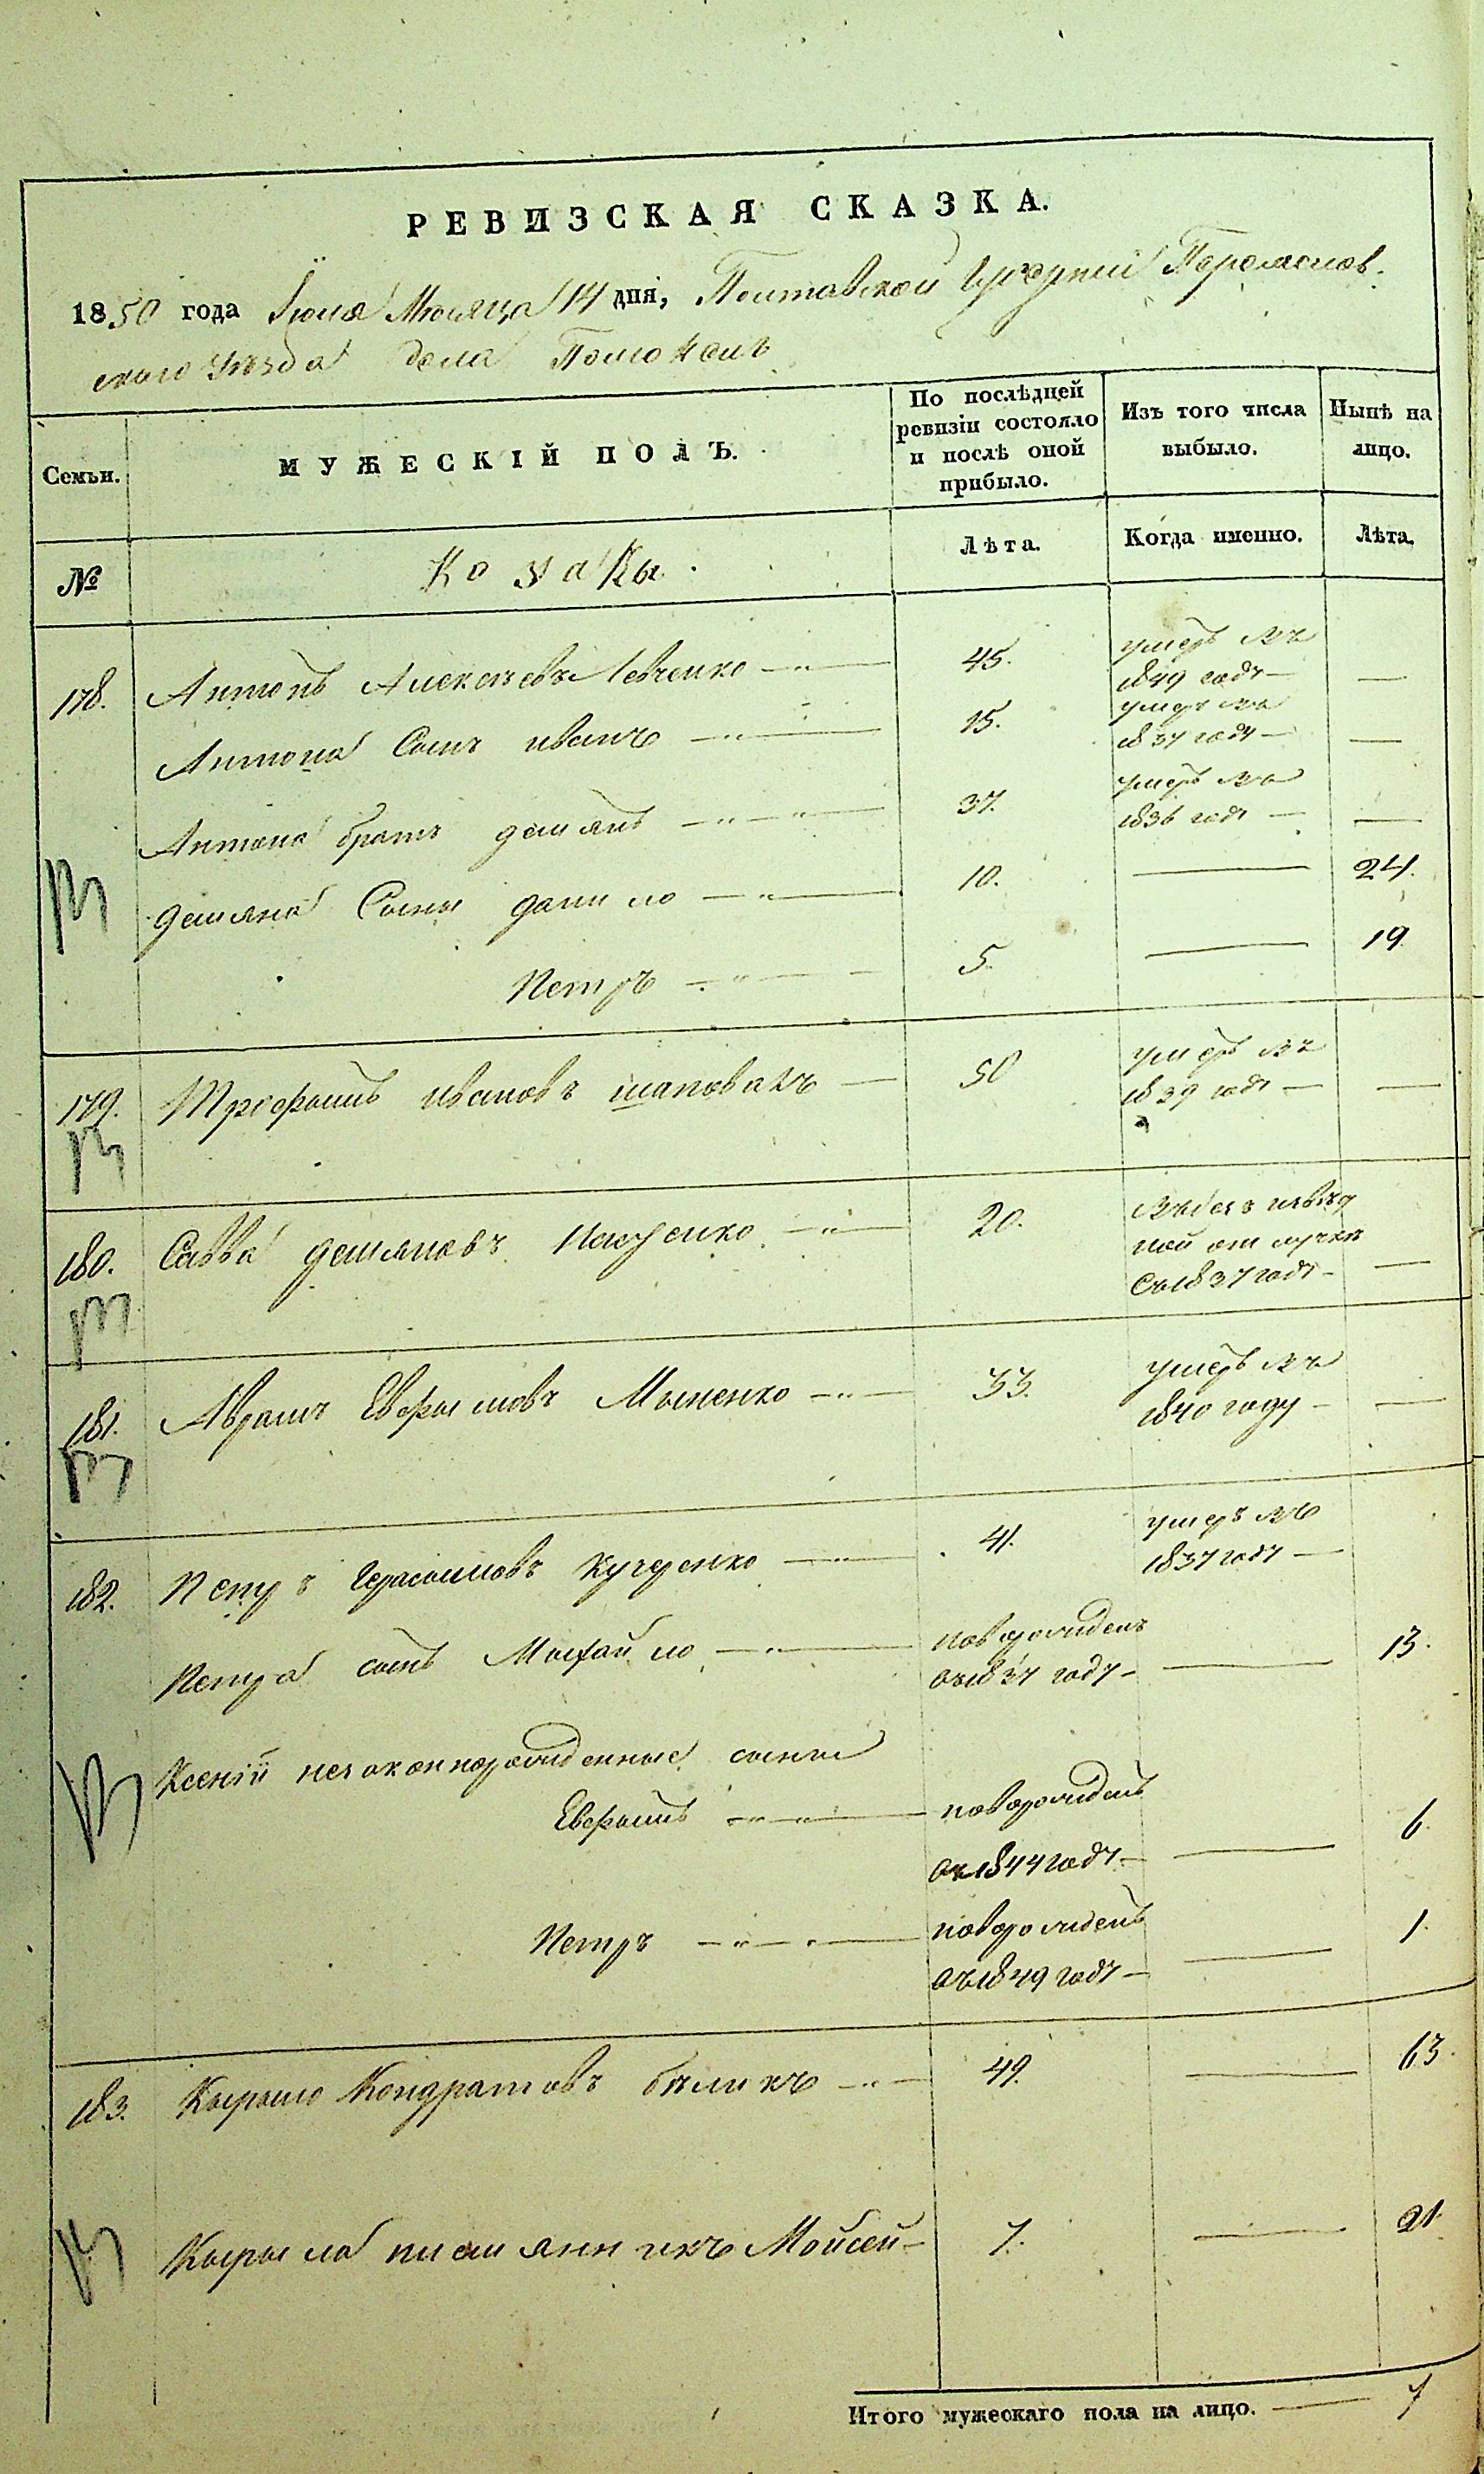 РЕВИЗСКАЯ СКАЗКА.
1850 года Іюня Месяца 14 дня, Полтавской Губерніи Переяслов-
ского уѣзда села Помоклъ
Семьи.
МУЖЕСКІЙ ПОЛЪ.
По послѣдней
ревизіи состояло
и послѣ оной
прибыло.
Изъ того числа
выбыло.
Нынѣ на
лицо.
№
Козаки.
Лѣта.
Когда именно.
Лѣта.
178. Антонъ Алексѣевъ Левченко 45. умеръ въ
1849 году —
Антона Сынъ иванъ 15. умеръ въ
1837 году —
Антона братъ демянъ 37. умеръ въ
1836 году —
демяна Сыны данило 10. — 24.
Петръ 5. — 19
179. Трофимъ ивановъ шаповалъ — 50 умеръ въ
1839 году —
180. Савва демяновъ 20.
ной отлучке
Съ 1837 году —
181. Аврамъ Евфимовъ 33. умеръ въ
1840 году —
182. Петръ Герасимовъ Кучеренко 41. умеръ въ
1837 году —
Петра сынъ Михайло новорожденъ
въ 1837 году — 13.
Ксеніи незаконнорожденные сыны
Евфимъ новорожденъ
въ 1844 году — 6.
Петръ новорожденъ
въ 1849 году — 1.
183. Кырыло Кондратовъ бѣликъ 49. — 63.
Кырыла племянникъ Мойсей — 7. — 21
Итого мужескаго пола на лицо. — 7